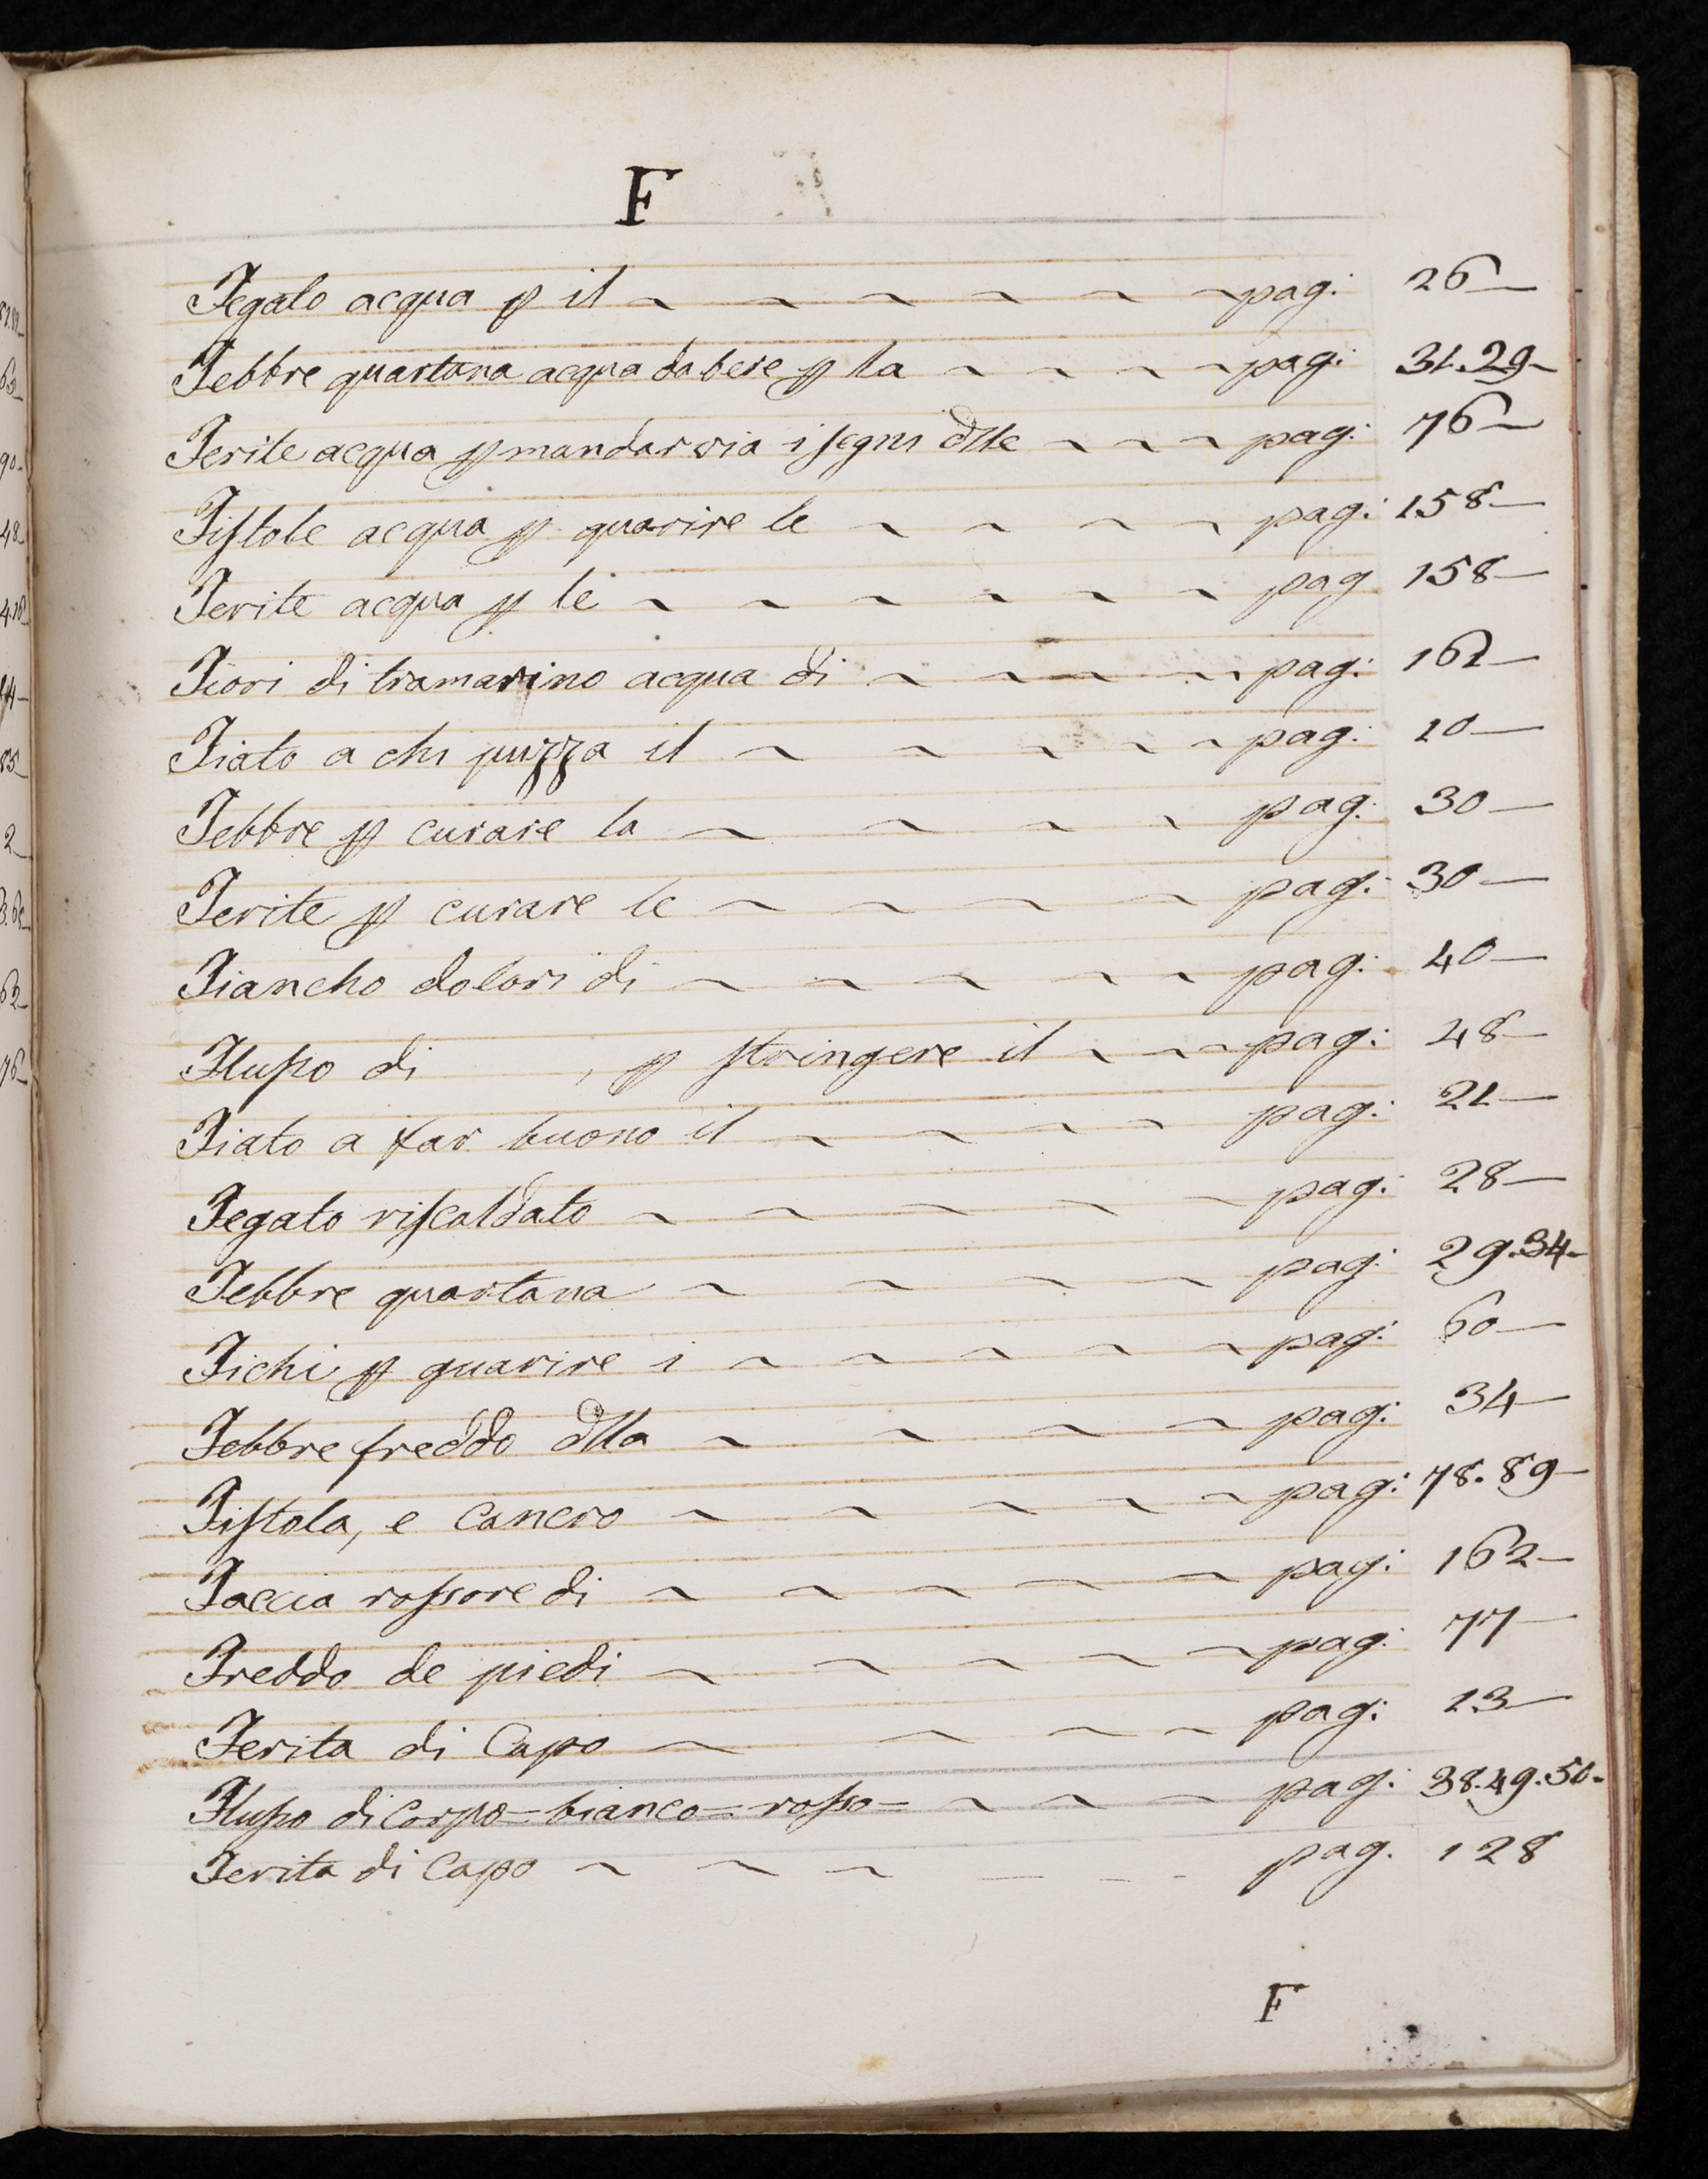 F
Fegato acqua ꝑ il ~ ~ ~ ~ ~ ~ pag: 26—
Febbre quartana acqua da bere ꝑ la ~ ~ ~ ~ ~ pag: 31.29—
Ferite acqua ꝑ mandar via i ſegni dlle ~ ~ ~ pag: 76—
Fiſtole acqua ꝑ guarire le ~ ~ ~ ~ pag: 158—
Ferite acqua ꝑ le ~ ~ ~ ~ ~ ~ pag 158—
Fiori di tramarino acqua di ~ ~ ~ ~ pag: 161—
Fiato a chi puzza il ~ ~ ~ ~ ~ pag: 10—
Febbre ꝑ curare la ~ ~ ~ ~ pag: 30—
Ferite ꝑ curare le ~ ~ ~ ~ ~ pag: 30—
Fiancho dolori di ~ ~ ~ ~ ~ pag: 40—
Fluſso di , ꝑ ſtringere il ~ ~ pag: 48—
Fiato a far buono il ~ ~ ~ ~ pag: 21—
Fegato riſcaldato ~ ~ ~ ~ ~ ~ pag: 28—
Febbre quartana ~ ~ ~ ~ pag: 29.34—
Fichi ꝑ guarire i ~ ~ ~ ~ ~ pag: 60—
Febbre freddo dlla ~ ~ ~ ~ pag: 34—
Fiſtola, e cancro ~ ~ ~ ~ ~ pag: 78.89—
Faccia roſsore di ~ ~ ~ ~ ~ pag: 162—
Freddo de piedi ~ ~ ~ ~ ~ pag: 77—
Ferita di Capo ~ ~ ~ ~ pag: 13—
Fluſso di Corpo= bianco= roſso= ~ ~ ~ pag: 38.49.50—
Ferita di Capo ~ ~ ~ — - - pag. 128
F